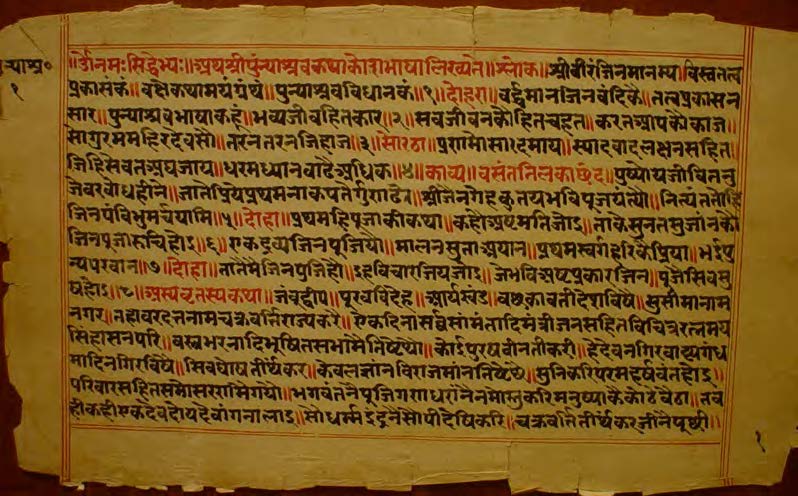 ॥र्द०॥ॐनमःसिद्धेभ्यः॥अथश्रीपुंन्याश्रवकथाकोशभाषालिख्यते॥श्लोक॥श्रीवीरंजिनमानम्य॥विस्वतत्व
प्रकासकं॥वक्षेकथामयंग्रंथं॥पुन्याश्रवविधानकं॥१॥दोहरा॥वर्द्धमानजिनवंदिकै॥तत्वप्रकासन
सार॥पुन्याश्रवभाषाकहं॥भव्यजीवहितकार॥२॥सवजीवनकौहितचहत॥करतआपकौकाज॥
सोगुरुममहिरदैवसौ॥तारनतरनजिहाज॥३॥सोरठा॥प्रणमोसारदमाय॥स्यादवादलक्षनसहित॥
जिहिसेवतअघजाय॥धरमध्यानवाढैअधिक॥४॥काव्य॥वसंततिलकाछंद॥पुष्पोपजीवितनु
जेवरवोधहीने॥जातेप्रियेप्रथमनाकपतेर्गुणाढे॥श्रीजैनगेहकुतपभविपूजयत्यौ॥नित्यंततोहि
जिनपंविभुमर्चयामि॥५॥दोहा॥प्रथमहिपूजाकीकथा॥कहोअष्टमतिजोइ॥ताकेसुनतसुजांनकौ
जिनपूजारुचिहोइ॥६॥एकद्रव्यजिनपूजियौ॥मालनसुताअयान॥प्रथमस्वर्गहरिकैप्रिया॥भईपु
न्यपरवान॥७॥दोहा॥तातैमैजिनपुजिहौ॥इहविचारजियजोइ॥जेभविअष्टप्रकारजिन॥पूजैसिवसु
षहोइ॥८॥अस्यवृतस्यकथा॥जंवूद्वीप॥पूरवविदेह॥आर्यखंड॥वछकावतीदेशविषै॥सुसीमानाम
नगर॥तहावरदत्तनामचक्रवर्त्तिराज्यकरै॥एकदिनासर्वसांमंतादिमंत्रीजनसहितविचित्ररत्नमय
सिंहासनपरि॥वस्त्रभरनादिभूषितसभामैतिष्टैथो॥कोईपुरषवीनतीकरी॥हेदेवनगिरवाह्यगंध
मादिनगिरविषै॥सिवघोषतीर्थंकर॥केवलज्ञानविराजमांनतिष्टैथे॥सुनिकरिपरमहर्षवंतहोइ॥
परिवारसहितसमोसरणमेगयौ॥भगवंतनैपूजिगणधरांनैनमोस्तुकरिमनुष्याकैकोठैवैठा॥तव
हीकहीएकदेवदोयदेवांगनालाइ॥सोधर्म्मइंद्रनैसौपीदेषिकरि॥चक्रवर्त्तितीर्थंकरजीनैपूछी॥
न्याश्र०
१
१